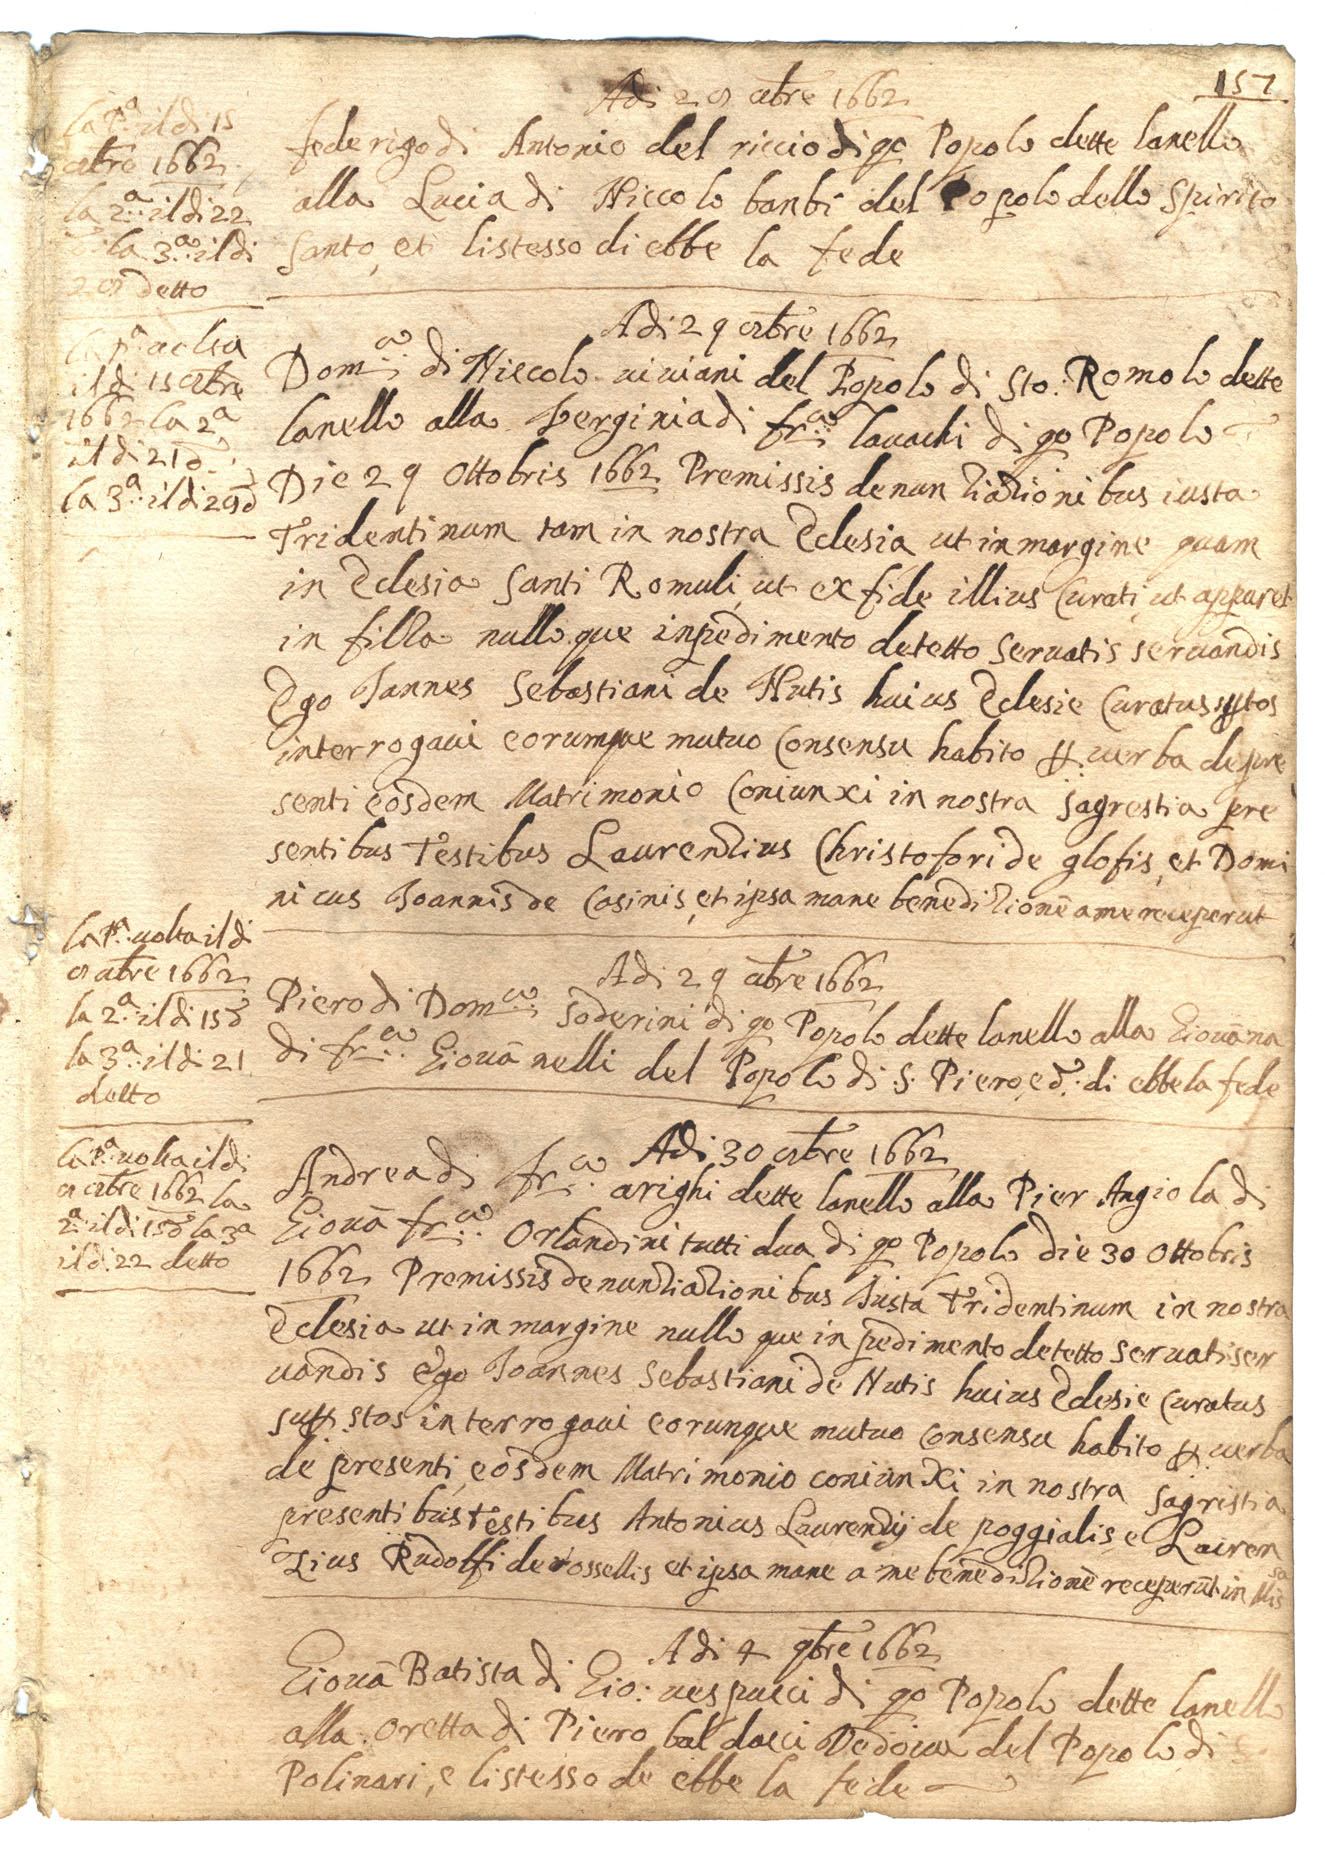 157
Adi 29 8bre 1662
la P.ª il di 15
8bre 1662
la 2.ª il di 22
la 3.ª il di
29 detto
federigo di Antonio del riccio di qo Popolo dette lanello
alla Lucia di Niccolo banbi del Popolo dello Spirito
Santo, et listesso di ebbe la fede
Adi 29 8bre 1662
la p.ª volta
il di 15 8bre
1662 la 2ª
il di 21 d.
la 3.ª il di 29 d
Dom.co di Niccolo viviani del Popolo di Sto: Romolo dette
lanello alla Verginia di fr.co lavachi di qo Popolo
Die 29 Ottobris 1662 Premissis denuntiationibus iusta
Tridentinum tam in nostra Eclesia ut in margine quam
in Eclesia Santi Romuli, ut ex fide illius Curati, ut apparet
in filla nulloque inpedimento detetto servatis servandis
Ego Iannes Sebastiani de Nutis huius Eclesie Curatus
interrogavi eorumque mutuo Consensu habito p verba de pre
senti eosdem Matrimonio Coniunxi in nostra Sagrestia pre
sentibus Testibus Laurentius Christofori de glofis, et Domi
nicus Joannis de Casinis, et ipsa mane beneditionē a me receperūt
Adi 29 8bre 1662
la P.ª volta il di
8bre 1662
la 2.ª il di 15 d
la 3.ª il di 21
detto
Piero di Dom.co Soderini di qo Popolo dette lanello alla Giovāna
di fr.co Giovānelli del Popolo di S. Piero, e d.º di ebbe la fede
Adi 30 8bre 1662
la P.ª volta il di
8bre 1662 la
2.ª il di 15 d la 3ª
il di 22 detto
Andrea di fr.co arighi dette lanello alla Pier Angiola di
Giovā fr.co Orlandini tutti dua di qo Popolo die 30 Ottobris
1662 Premissis denuntiationibus Iusta Tridentinum in nostra
Eclesia ut in margine nulloque inpedimento detetto servatis ser
vandis Ego Joannes Sebastiani de Nutis huius Eclesie Curatus
interrogavi eorunque mutuo consensu habito p verba
de presenti, eosdem Matrimonio coniunxi in nostra Sagristia
presentibus Testibus Antonius Laurentij de poggialis e Lauren
tius Rudolfi de rossellis et ipsa mane a me beneditionē receperūt in Mis
sa
Adi 4 9bre 1662
Giovā Batista di Gio: vespucci di qo Popolo dette lanello
alla Oretta di Piero baldocci Vedova del Popolo di
Polinari, e listesso de ebbe la fede